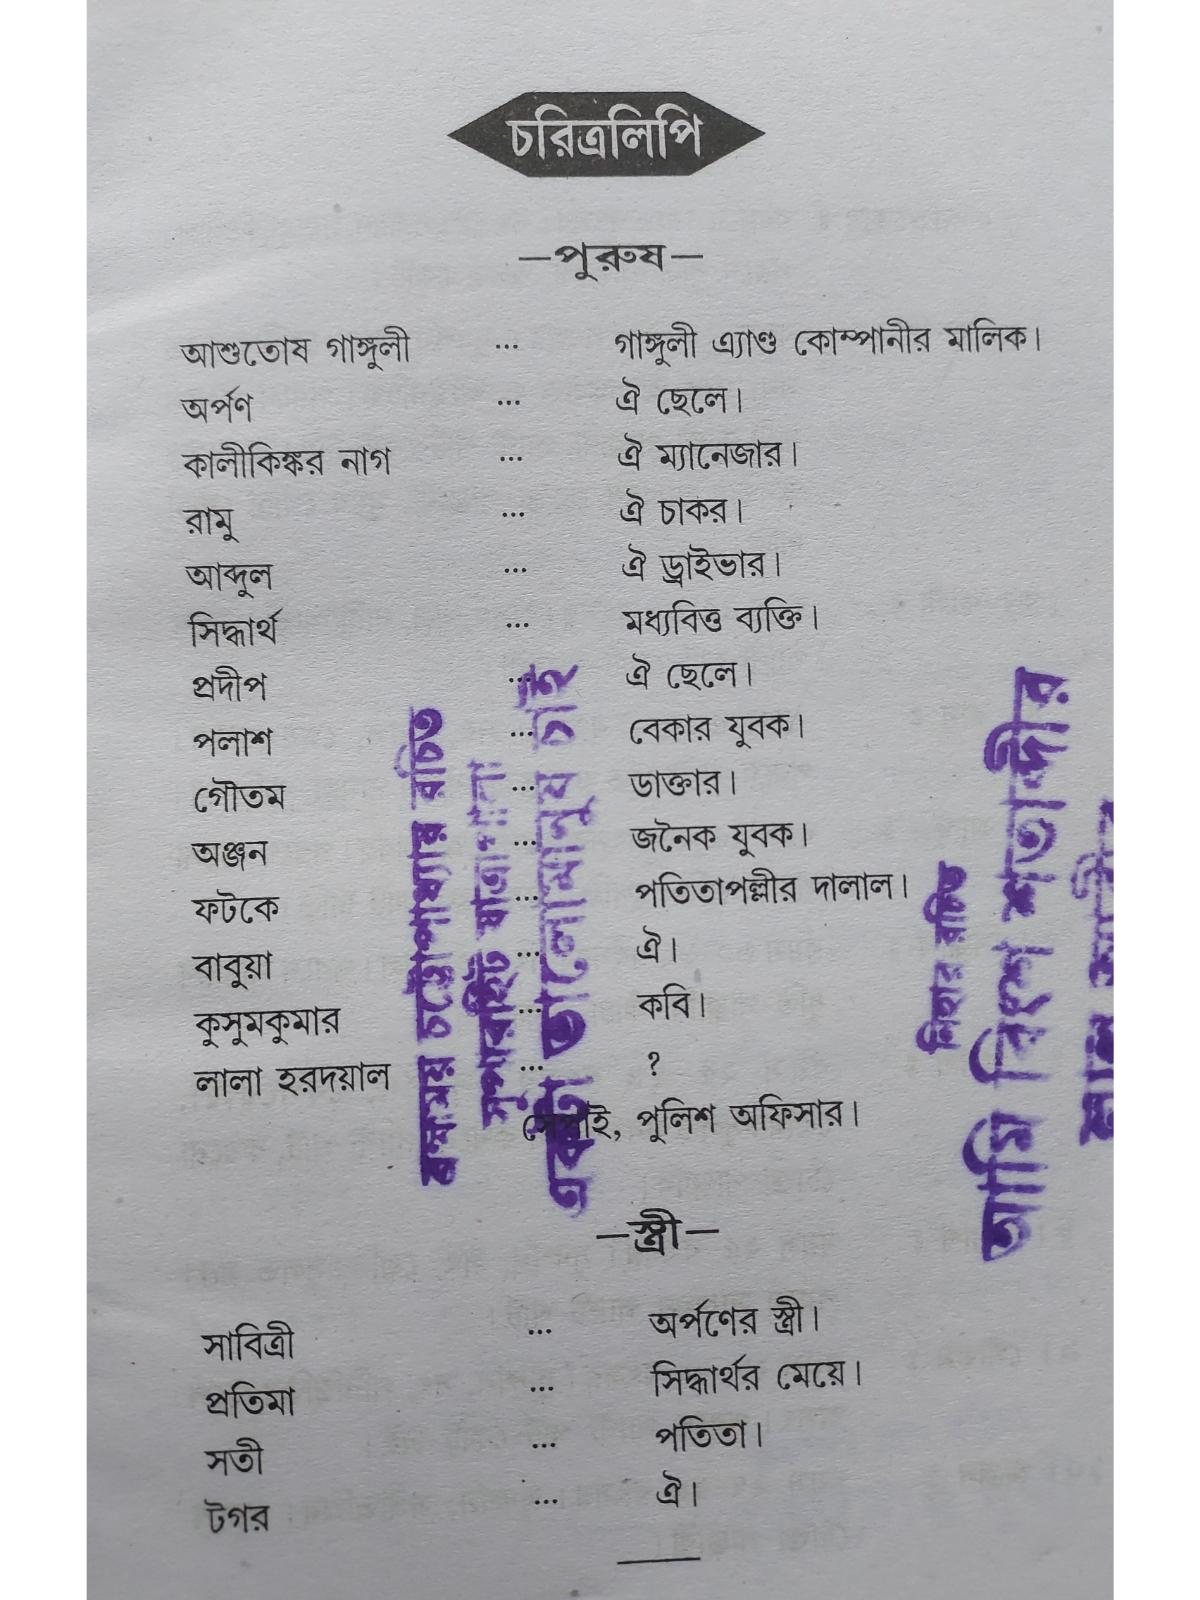 চরিত্রলিপি
—পুরুষ—
আশুতোষ গাঙ্গুলী ... গাঙ্গুলী এ্যাণ্ড কোম্পানীর মালিক।
অর্পণ ... ঐ ছেলে।
কালীকিঙ্কর নাগ ... ঐ ম্যানেজার।
রামু ... ঐ চাকর।
আব্দুল ... ঐ ড্রাইভার।
সিদ্ধার্থ ... মধ্যবিত্ত ব্যক্তি।
প্রদীপ ... ঐ ছেলে।
পলাশ ... বেকার যুবক।
গৌতম ... ডাক্তার।
অঞ্জন ... জনৈক যুবক।
ফটকে ... পতিতাপল্লীর দালাল।
বাবুয়া ... ঐ।
কুসুমকুমার ... কবি।
লালা হরদয়াল ... ?
সেপাই, পুলিশ অফিসার।
—স্ত্রী—
সাবিত্রী ... অর্পণের স্ত্রী।
প্রতিমা ... সিদ্ধার্থর মেয়ে।
সতী ... পতিতা।
টগর ... ঐ।
চট্টোপাধ্যায় রচিত
সুপারহিট যাত্রাপালা
একটা ভালোমানুষ চাই
নিহার রচিত
আমি বিংশ শতাব্দীর